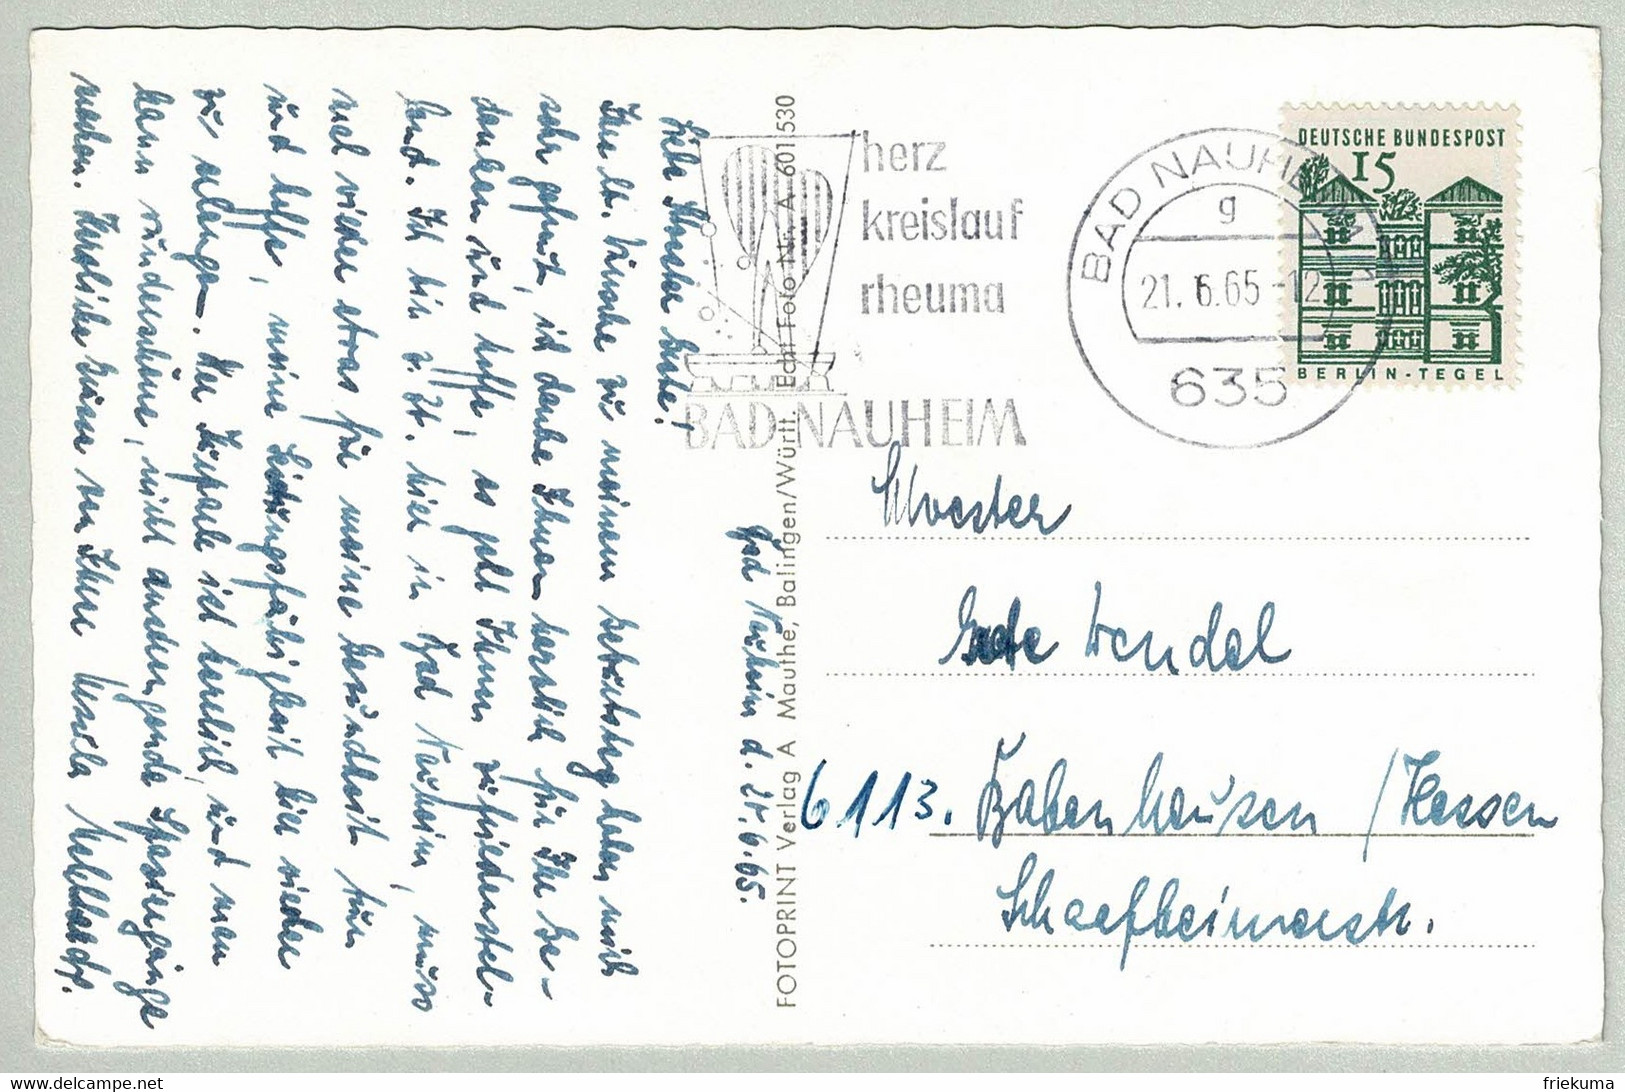 Bad Nauheim d. 20.6.65.
Liebe Schwester Gerte!
Ihre lb. Wünsche zu meinem Geburtstag haben mich
sehr gefreut, ich danke Ihnen herzlich für Ihr Ge-
denken und hoffe, es geht Ihnen zufriedenstel-
lend. Ich bin z. Zt. hier in Bad Nauheim, muss
viel wieder etwas für meine Gesundheit tun
und hoffe, meine Leistungsfähigkeit hier wieder
zu erlangen. Der Kurpark ist herrlich und man
kann wunderschöne, nicht anstrengende Spaziergänge
machen. Herzliche Grüsse von Ihrer
herz
kreislauf
rheuma
BAD NAUHEIM
BAD NAUHEIM
g
21. 6.65-12
635
DEUTSCHE BUNDESPOST
15
BERLIN-TEGEL
FOTOPRINT Verlag A. Mauthe, Balingen/Württ. Echt Foto Nr. A 6011530
Schwester
Wendel
6113. Babenhausen /Hessen
Schaafheimerstr.
friekuma